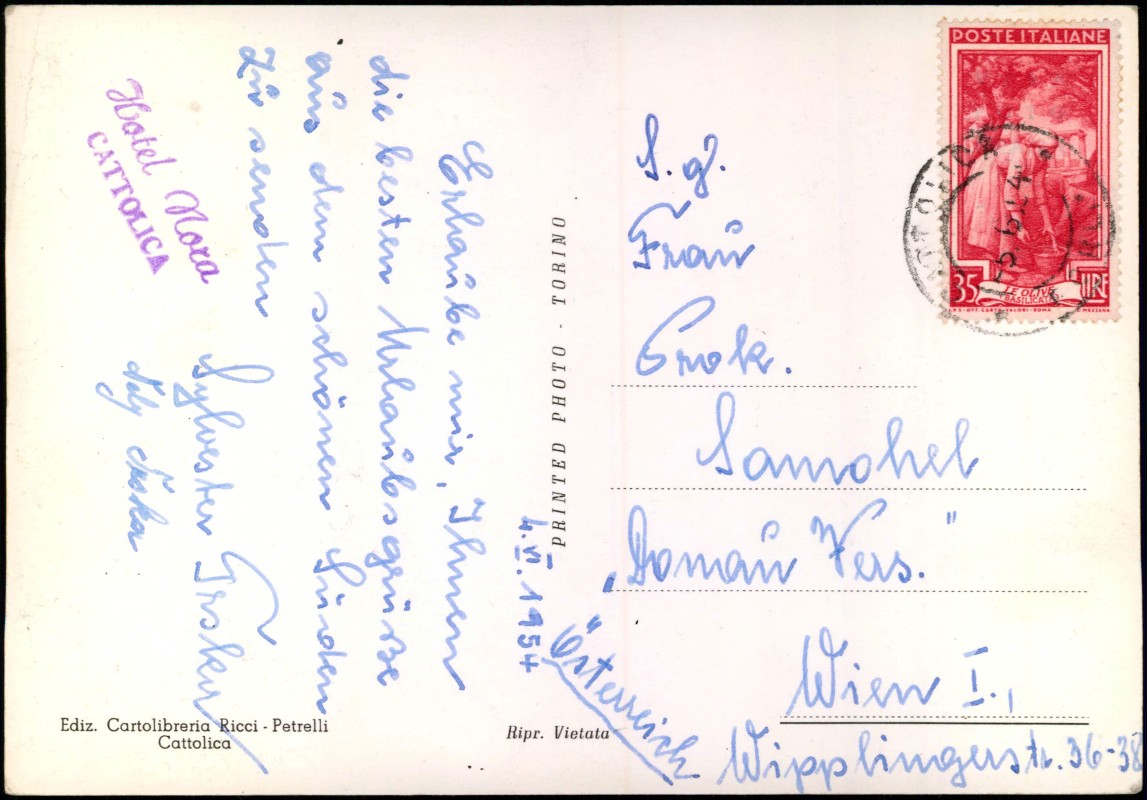 4.VI.1954
Erlaube mir, Ihnen
die besten Urlaubsgrüße
aus dem schönen Süden
zu senden
Sylvester
Hotel Nora
CATTOLICA
Ediz. Cartolibreria Ricci - Petrelli
Cattolica
PRINTED PHOTO - TORINO
Ripr. Vietata
POSTE ITALIANE
35 LIRE
LE OLIVE
BASILICATA
P.S - OFF. CARTE - VALORI - ROMA
C. MEZZANA
S. g.
Frau
Prok.
Samohel
„Donau Vers."
Wien I.,
Wipplingerstr. 36-38
Österreich